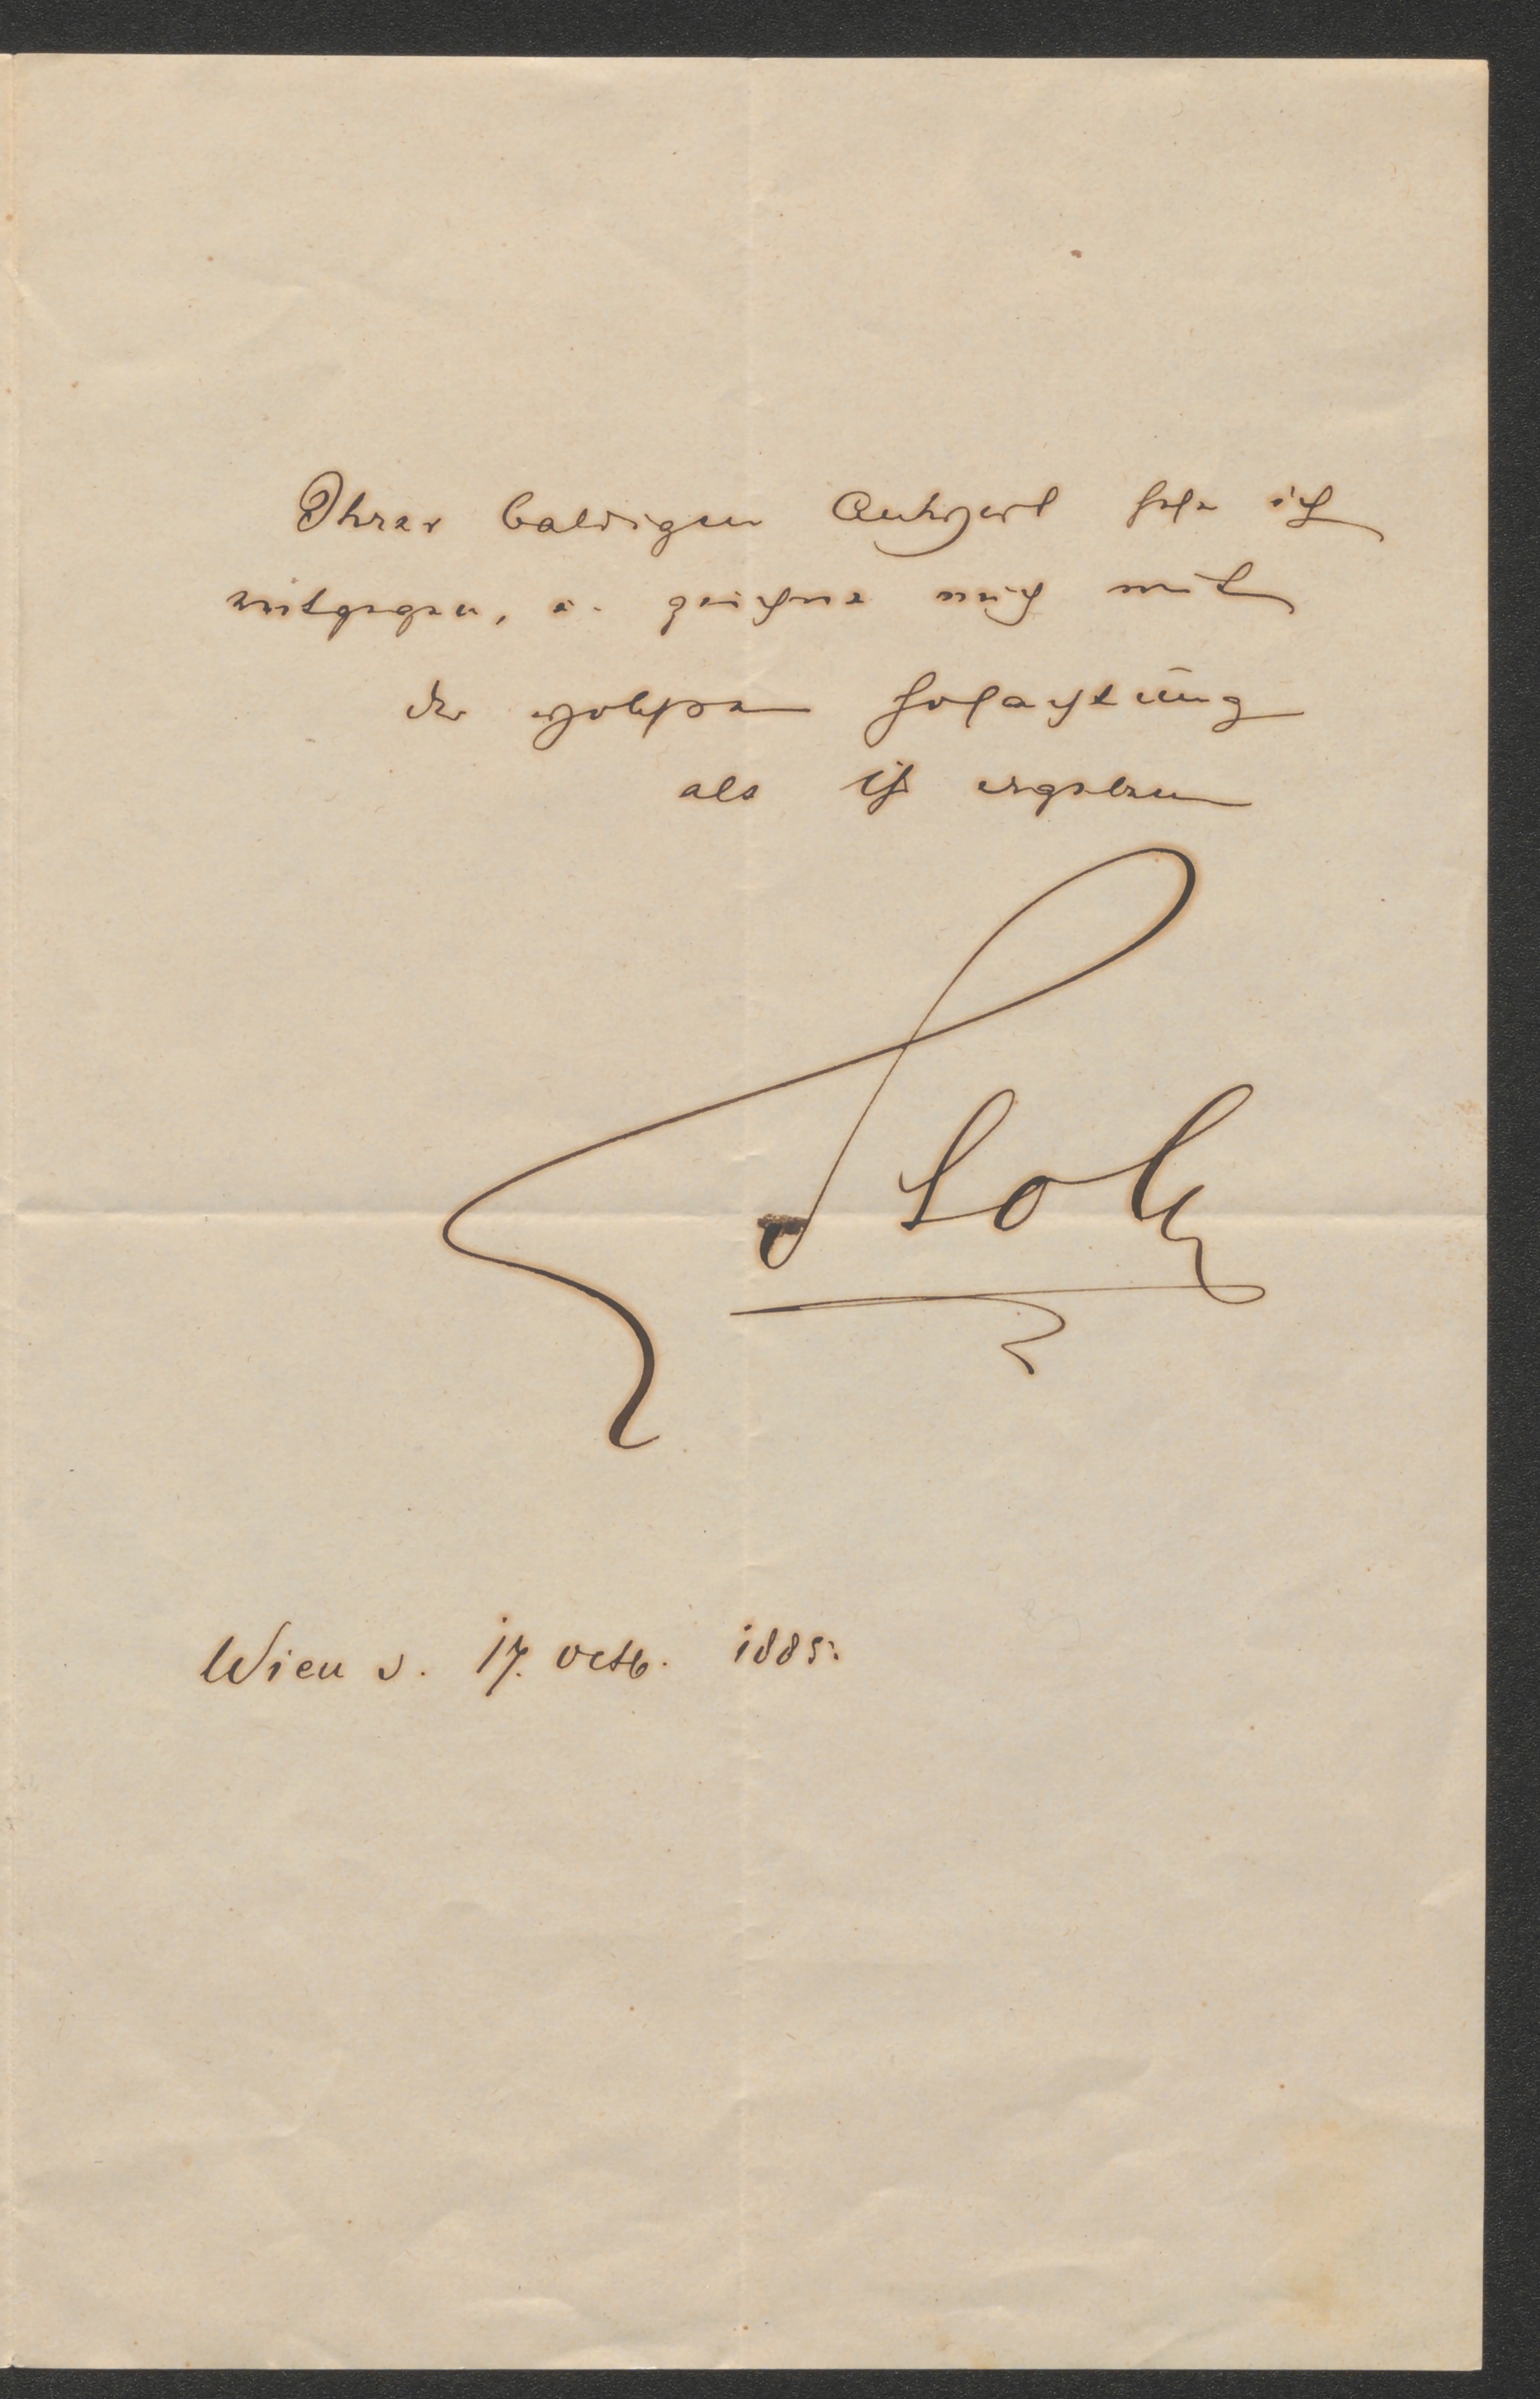 Ihrer baldigen Antwort sehe ich
entgegen, u. zeichne mich mit
der vollsten Hochachtung
als Ihr ergebener
Wien d. 17. Octb. 1885.